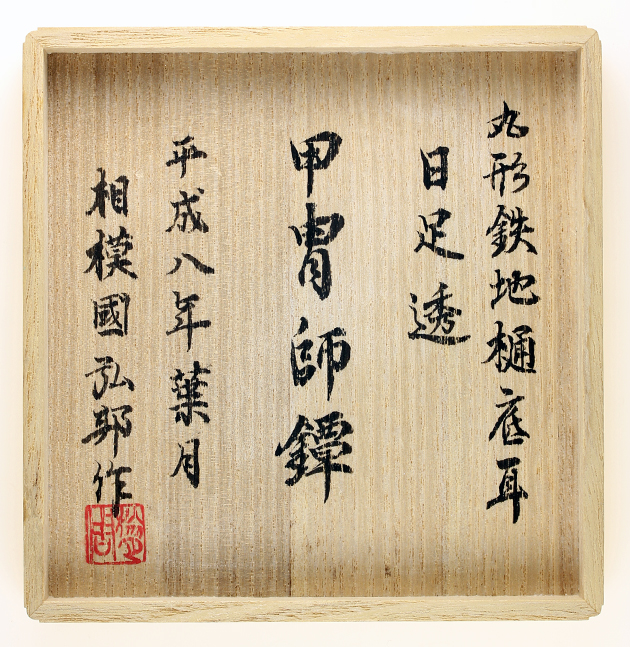 丸形鉄地樋底耳
日足透
甲冑師鐔
平成八年葉月
相模國弘邦作